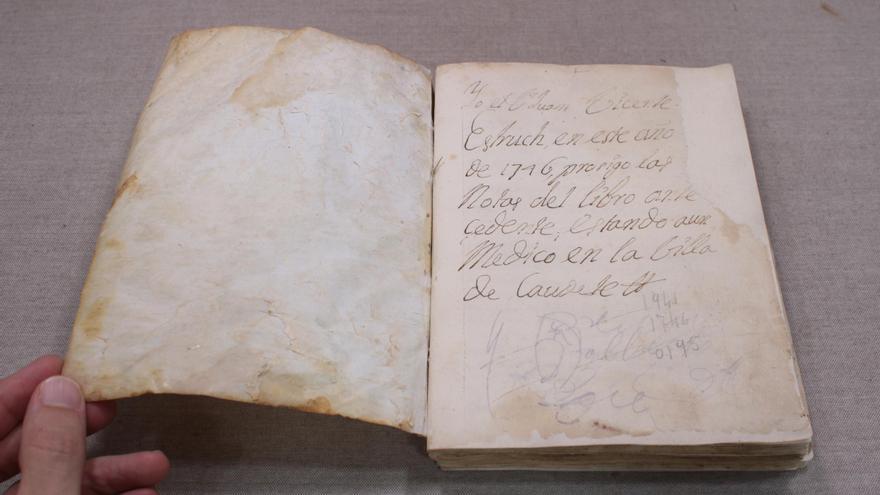 Yo el Dr Juan Vicente
Estruch, en este año
de 1746, prosigo las
Notas del libro ante
cedente, estando aun
Medico en la Villa
de Caudete
1941
1746
0195
José